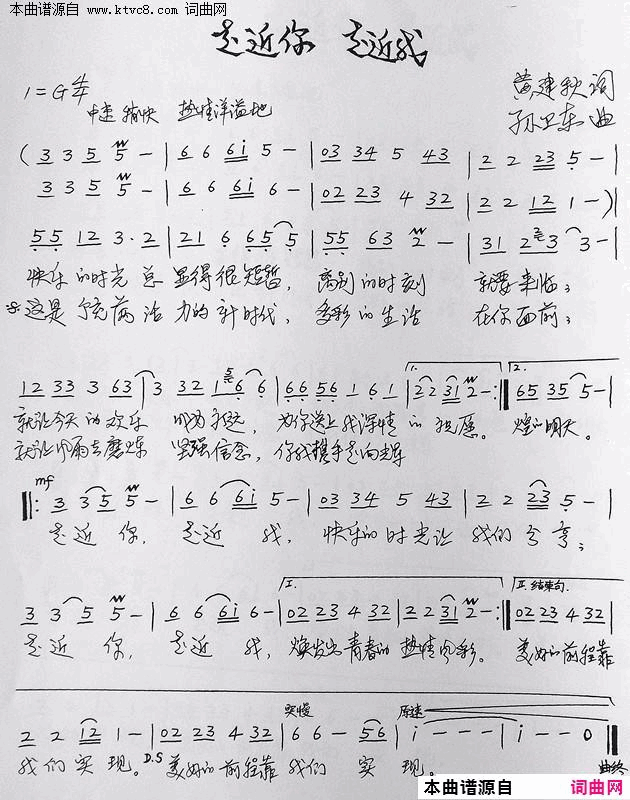 本曲谱源自
www.ktvc8.com 词曲网
走近你 走近我
1=G 4/4
中速 稍快 热情洋溢地
黄建秋词
孙卫东曲
(3 3 5 5 - | 6 6 6i 5 - | 03 34 5 43 | 2 2 23 5 - |
3 3 5 5 - | 6 6 6i 6 - | 02 23 4 32 | 2 2 12 1 - )|
55 12 3·2 | 21 6 65 5 | 55 63 2 - | 31 23 3 - |
快乐的时光总 显得很短暂, 离别的时刻 就要来临;
这是个充满活 力的新时代, 多彩的生活 在你面前;
1. 2.
12 33 3 63 | 3 32 1 6 6 | 66 56 1 6 1 | 2 2 31 2 - :| 65 35 5 - |
就让今天的欢乐 成为永远, 为你送上我深情的祝愿。 煌的明天。
就让风雨去磨炼 坚强信念, 你我携手走向辉
mf
|: 3 3 5 5 - | 6 6 6i 5 - | 03 34 5 43 | 2 2 23 5 - |
走近你, 走近我, 快乐的时光让 我们分享;
I. II. 结束句.
3 3 5 5 - | 6 6 6i 6 - | 02 23 4 32 | 2 2 31 2 - :| 02 23 4 32 |
走近你, 走近我, 焕发出青春的 热情风彩。 美好的前程靠
突慢 原速
2 2 12 1 - | 02 23 4 32 | 6 6 - 56 | i - - - | i - - 0 ‖
我们实现。 D.S 美好的前程靠 我们 实现。 曲终
本曲谱源自 词曲网